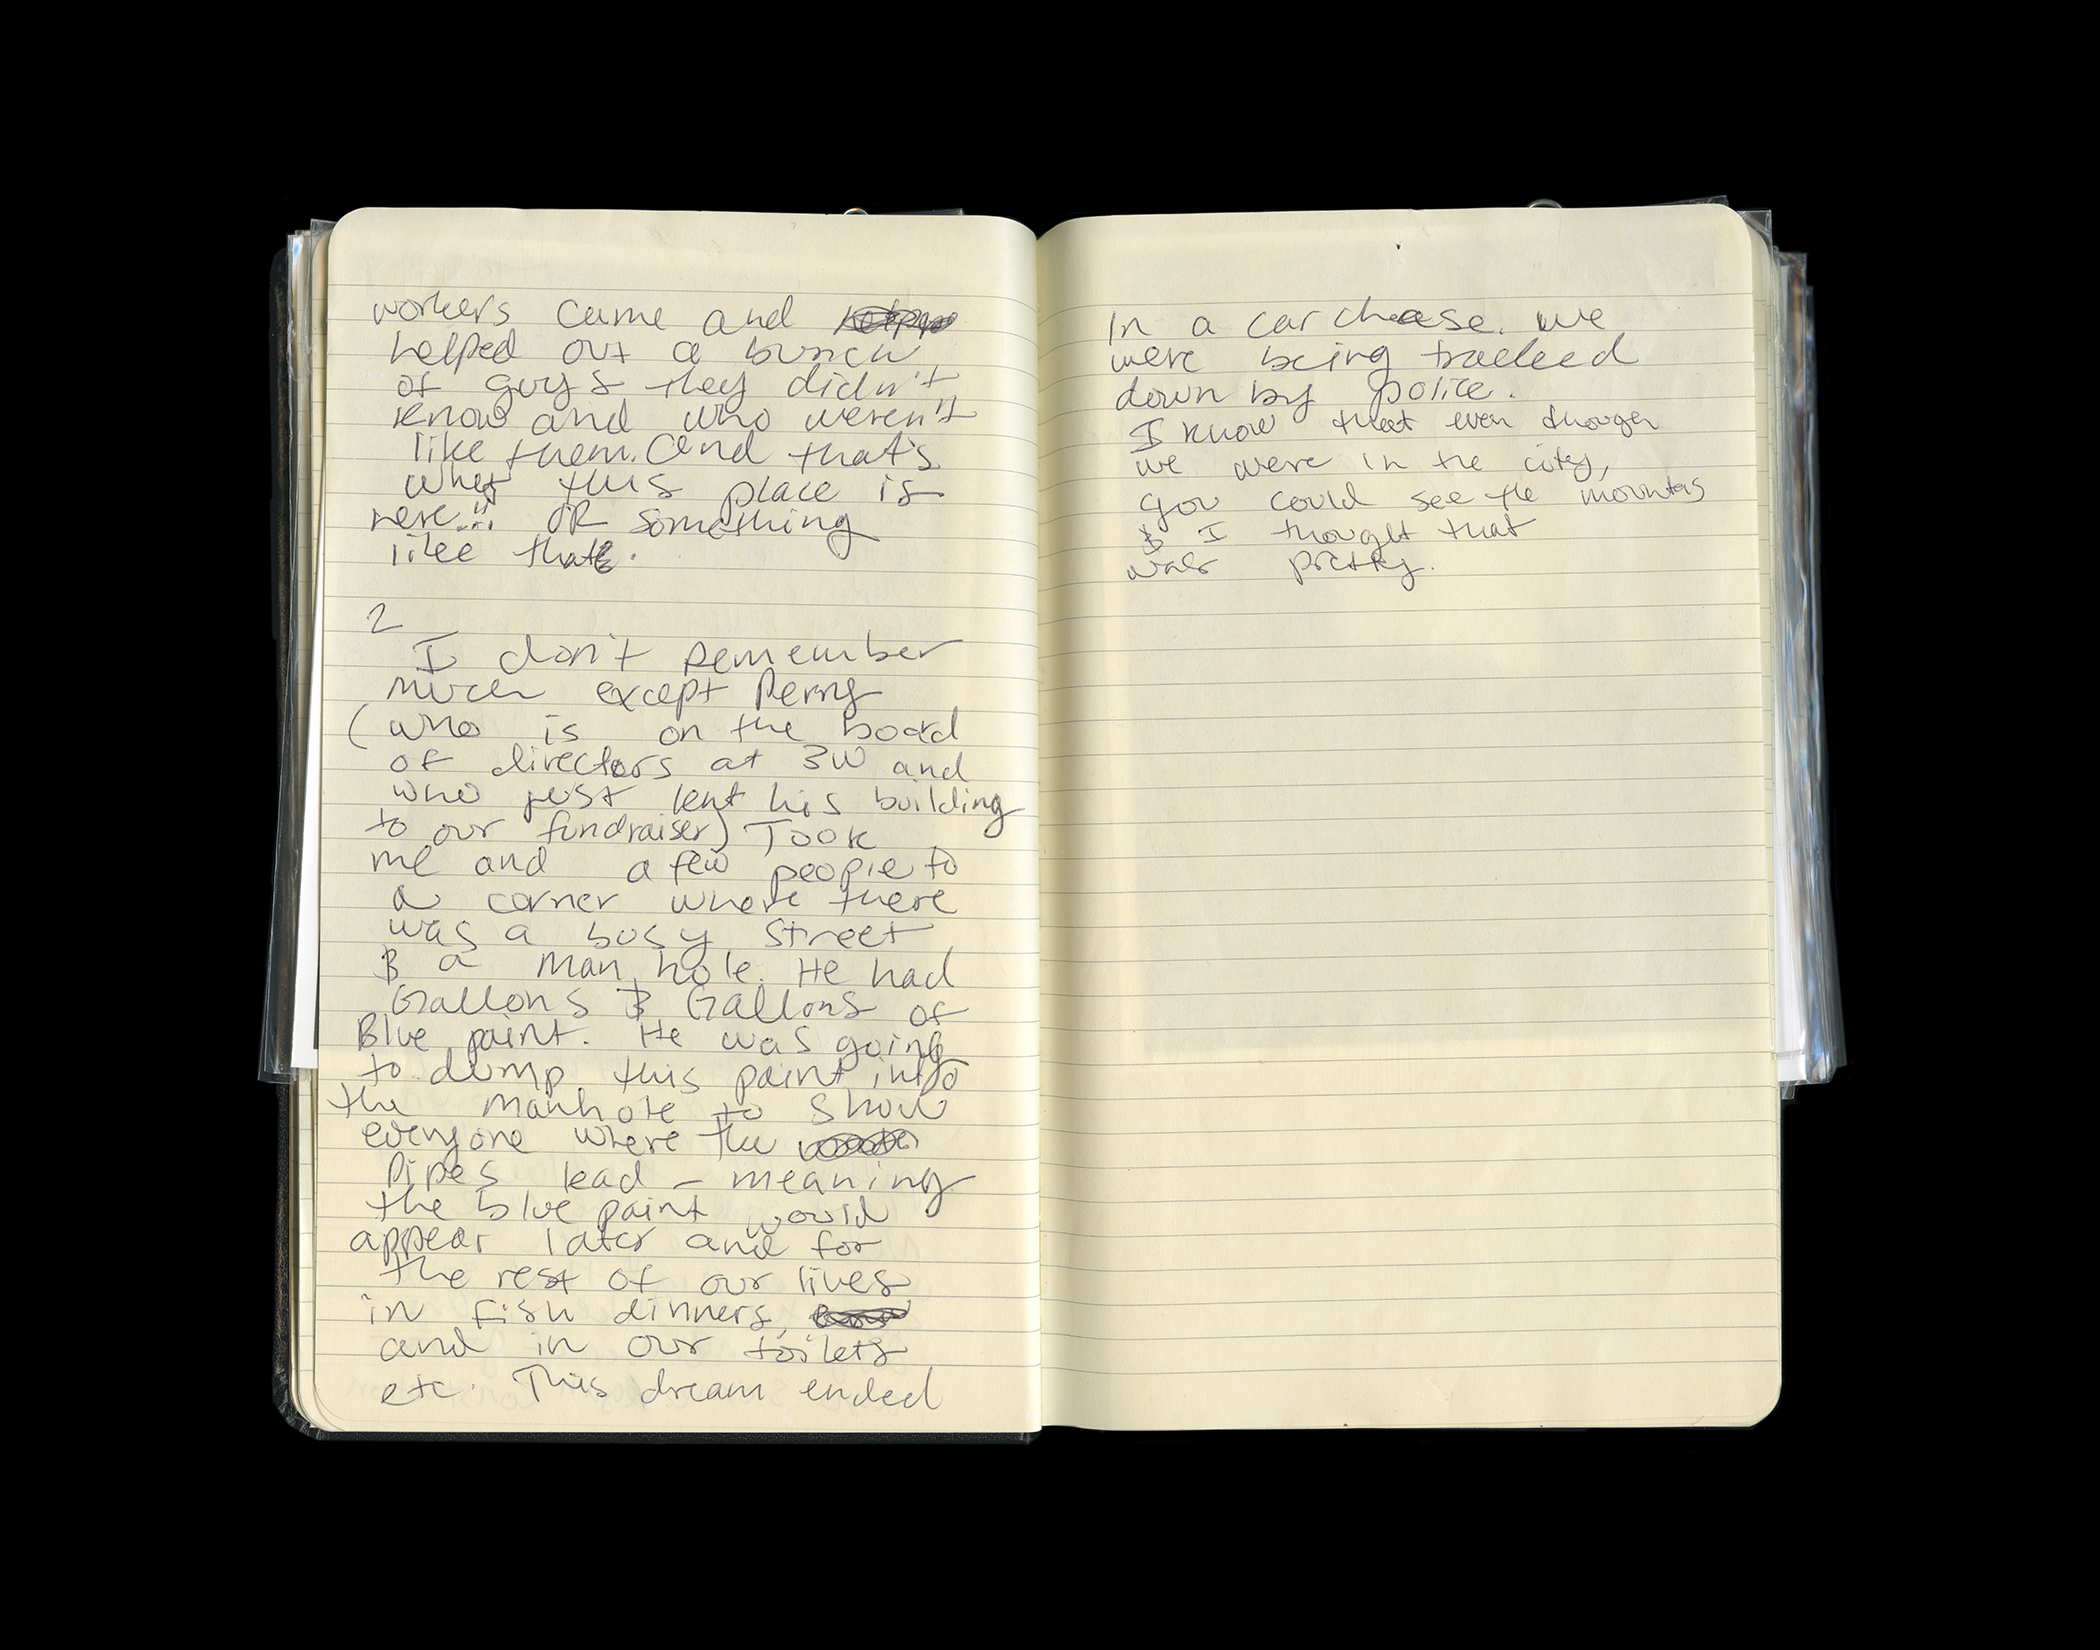 workers came and
helped out a bunch
of guys they didn't
know and who weren't
like them. And that's
what this place is
here..." OR something
like that.
2
I don't remember
much except Perry
(who is on the board
of directors at 3W and
who just lent his building
to our fundraiser) Took
me and a few people to
a corner where there
was a busy street
& a man hole. He had
Gallons & Gallons of
Blue paint. He was going
to dump this paint into
the manhole to show
everyone where the
Pipes lead - meaning
the blue paint would
appear later and for
the rest of our lives
in fish dinners,
and in our toilets
etc. This dream ended
In a car chase. We
were being tracked
down by police.
I know that even though
we were in the city,
you could see the mountains
& I thought that
was pretty.